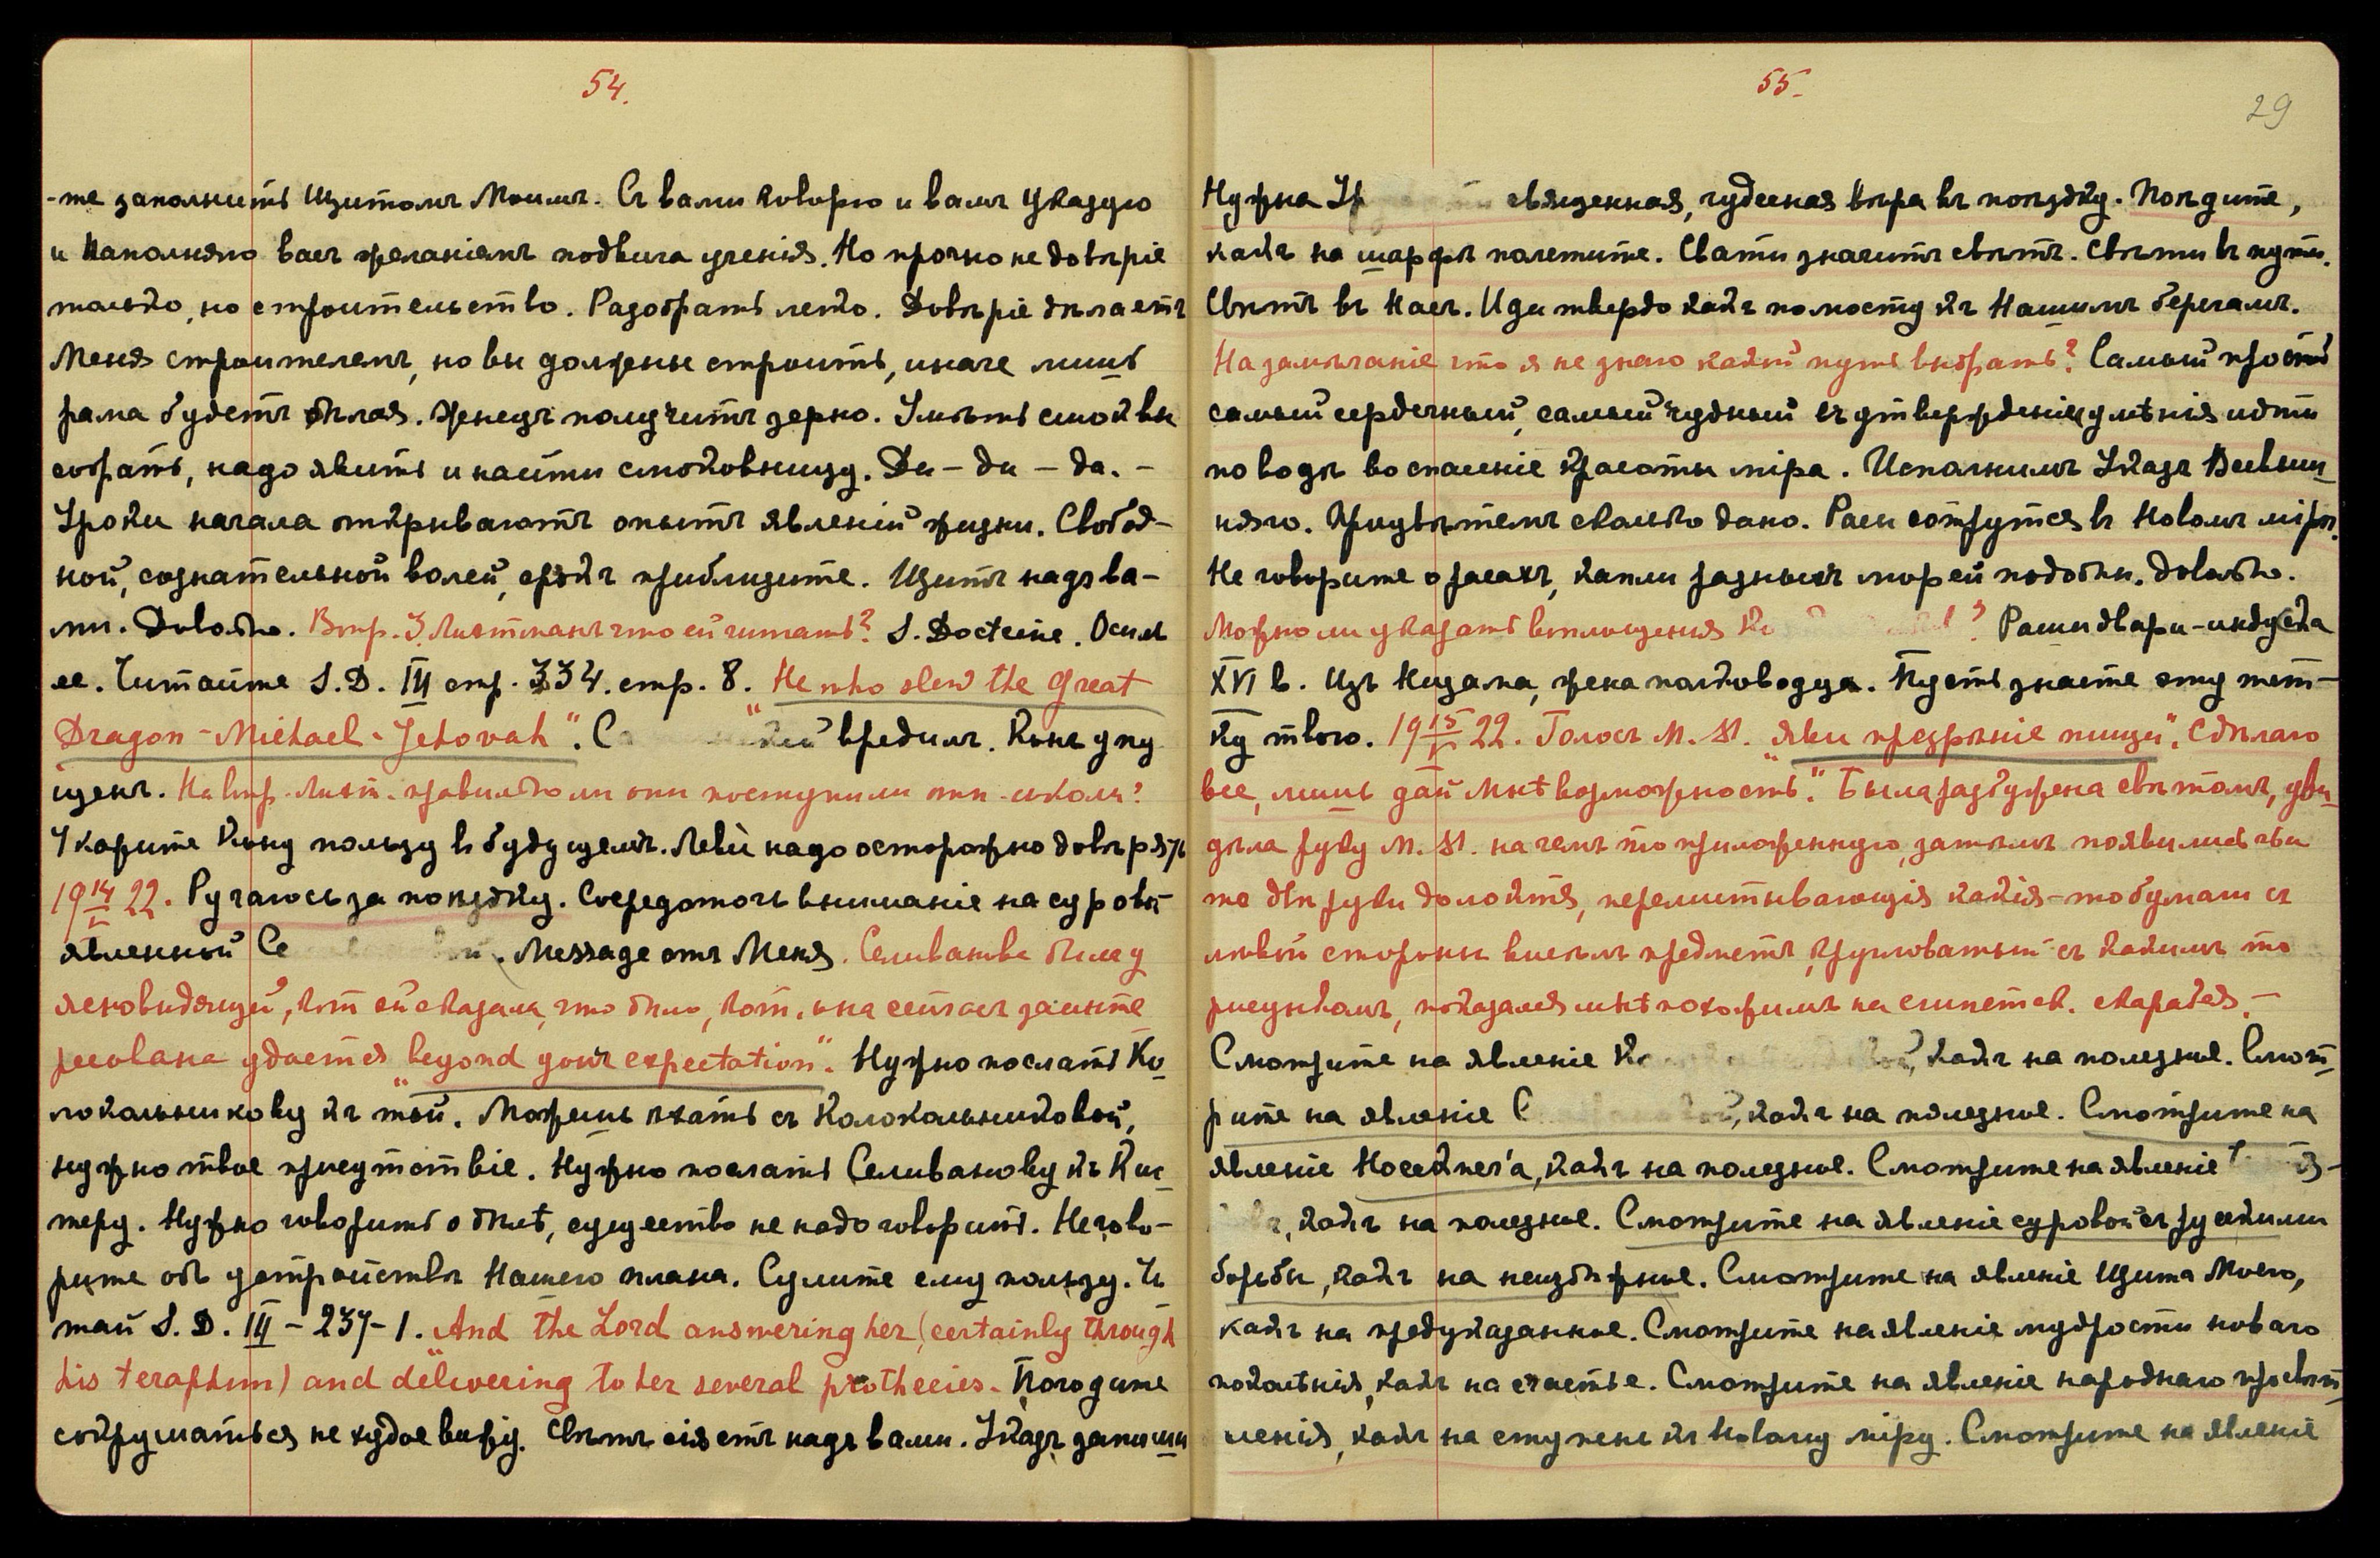 54.
-те заполнить Щитомъ Моимъ. Съ вами Говорю и вамъ Указую
и Наполняю васъ желаніемъ подвига ученія. Но прочно не довѣріе
только, но строительство. Разобрать легко. Довѣріе дѣлаетъ
Меня строителемъ, но вы должны строить, иначе лишь
рама будетъ бѣлая. Жнецъ получитъ зерно. Умѣть
собрать, надо явить и найти смоковницу. Да – да – да. –
Уроки начала открываютъ опытъ явленій жизни. Свобод-
ной, сознательной волей, срокъ приблизите. Щитъ надъ ва-
ми. Довольно. Вопр. что ей читать? S. Doctrine.
ее. Читайте S.D. III стр. 334. стр. 8. He who slew the great
Dragon – Michael – Jehovah". вредилъ.
щенъ. На вопр. правильно ли они поступили отн. школы?
пользу въ будущемъ. надо осторожно довѣрять
19 14/I 22. Ручаюсь за поѣздку. Сосредоточь вниманіе на суровѣ
явленной Message отъ Меня. была у
ясновидящей, кот. ей сказала, что было, кот. она сейчасъ
удастся "beyond your expectation". Нужно послать Ко-
локольникову къ той. Можешь ѣхать съ Колокольниковой,
нужно твое присутствіе. Нужно послать Селиванову къ Кис-
меру. Нужно говорить о существо не надо говорить. Не гово-
рите объ устройствѣ Нашего плана. Сулите ему пользу. Чи-
тай S.D. III – 237 – 1. And the Lord answering her (certainly through
his teraphim) and delivering to her several prothecies. Погодите
сокрушаться не худое вижу. Свѣтъ сіяетъ надъ вами. Указъ запиши
55.
29
Нужна священная, чудесная вѣра въ поѣздку. Поѣдите,
какъ на шарфѣ полетите. Свати значитъ свѣтъ. Свѣти въ пути.
Свѣтъ въ Насъ. Иди твердо какъ по мосту къ Нашимъ берегамъ.
На замѣчаніе что я не знаю какой путь выбрать? Самый простой
самый сердечный, самый чудный въ утвержденіи умѣнія идти
по водѣ во спасеніе красоты міра. Исполнимъ Указъ Всевыш-
няго. сколько дано. Расы сотрутся въ Новомъ мірѣ.
Не говорите о расахъ, капли разныхъ морей подобны. Довольно.
Можно ли указать воплощенія ? индуска
XVI в. Изъ Низама, жена полководца. Пусть знаете эту
твою. 19 15/I 22. Голосъ М. М. "Яви презрѣніе пищи". "Сдѣлаю
все, лишь дай Мнѣ возможность". Была разбужена свѣтомъ, уви-
дѣла руку М. М. на чемъ то приложенную, затѣмъ появились чьи
то двѣ руки до локтя, перелистывающія какія-то бумаги съ
лѣвой стороны висѣлъ предметъ, кругловатый съ какимъ то
рисункомъ, показался мнѣ похожимъ на египетск. скарабея. –
Смотрите на явленіе какъ на полезное. Смот-
рите на явленіе какъ на полезное. Смотрите на
явленіе какъ на полезное. Смотрите на явленіе
какъ на полезное. Смотрите на явленіе суровой съ русскими
борьбы, какъ на неизбѣжное. Смотрите на явленіе Щита Моего,
какъ на предуказанное. Смотрите на явленіе мудрости новаго
поколѣнія, какъ на счастье. Смотрите на явленіе народнаго просвѣт-
ленія, какъ на ступень къ Новому міру. Смотрите на явленіе